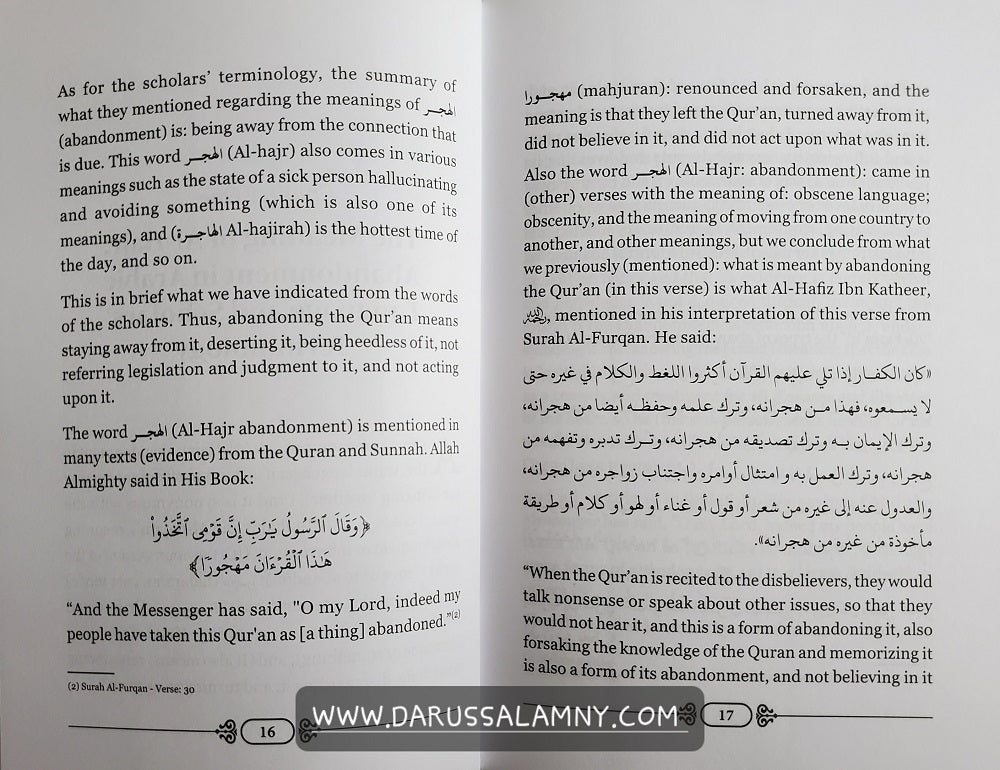 As for the scholars' terminology, the summary of
what they mentioned regarding the meanings of الهجـــر
(abandonment) is: being away from the connection that
is due. This word الهجـــر (Al-hajr) also comes in various
meanings such as the state of a sick person hallucinating
and avoiding something (which is also one of its
meanings), and (الهاجـــرة Al-hajirah) is the hottest time of
the day, and so on.
This is in brief what we have indicated from the words
of the scholars. Thus, abandoning the Qur'an means
staying away from it, deserting it, being heedless of it, not
referring legislation and judgment to it, and not acting
upon it.
The word الهجـــر (Al-Hajr abandonment) is mentioned in
many texts (evidence) from the Quran and Sunnah. Allah
Almighty said in His Book:
﴿وَقَالَ ٱلرَّسُولُ يَٰرَبِّ إِنَّ قَوْمِى ٱتَّخَذُوا۟
هَٰذَا ٱلْقُرْءَانَ مَهْجُورًا﴾
“And the Messenger has said, "O my Lord, indeed my
people have taken this Qur'an as [a thing] abandoned.”(2)
(2) Surah Al-Furqan - Verse: 30
16
مهجـــورا (mahjuran): renounced and forsaken, and the
meaning is that they left the Qur'an, turned away from it,
did not believe in it, and did not act upon what was in it.
Also the word الهجـــر (Al-Hajr: abandonment): came in
(other) verses with the meaning of: obscene language;
obscenity, and the meaning of moving from one country to
another, and other meanings, but we conclude from what
we previously (mentioned): what is meant by abandoning
the Qur'an (in this verse) is what Al-Hafiz Ibn Katheer,
رحمه الله, mentioned in his interpretation of this verse from
Surah Al-Furqan. He said:
«كان الكفـار إذا تلي عليهم القرآن أكثروا اللغط والكلام في غيره حتى
لا يـسمعوه، فهذا مـن هجرانه، وترك علمه وحفظـه أيضا من هجرانه،
وترك الإيمان بـه وترك تصديقه من هجرانه، وتـرك تدبره وتفهمه من
هجرانه، وترك العمل به و امتثال أوامره واجتناب زواجره من هجرانه،
والعدول عنه إلى غيره من شعر أو قول أو غناء أو لهو أو كلام أو طريقة
مأخوذة من غيره من هجرانه».
“When the Qur'an is recited to the disbelievers, they would
talk nonsense or speak about other issues, so that they
would not hear it, and this is a form of abandoning it, also
forsaking the knowledge of the Quran and memorizing it
is also a form of its abandonment, and not believing in it
17
WWW.DARUSSALAMNY.COM